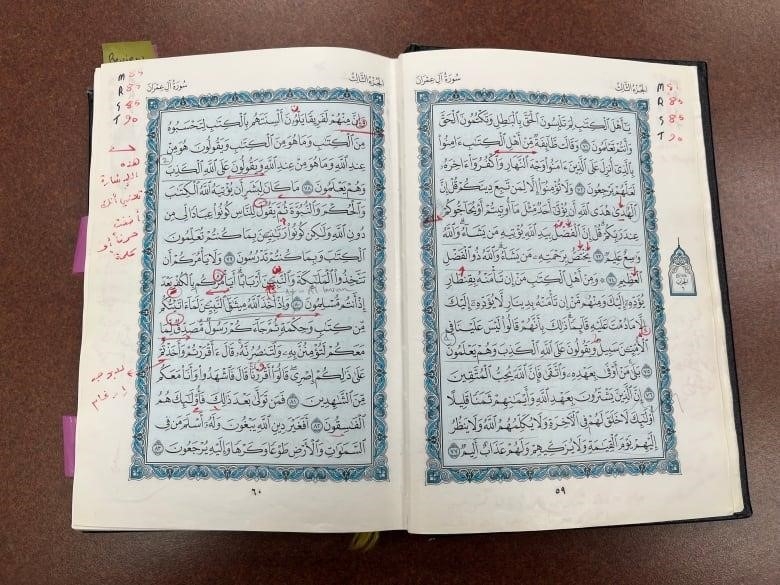 الجزء الثالث سورة آل عمران
M 81
R 85
S 85
T 90
يَـٰٓأَهْلَ ٱلْكِتَـٰبِ لِمَ تَلْبِسُونَ ٱلْحَقَّ بِٱلْبَـٰطِلِ وَتَكْتُمُونَ ٱلْحَقَّ
وَأَنتُمْ تَعْلَمُونَ ٧١ وَقَالَت طَّآئِفَةٌ مِّنْ أَهْلِ ٱلْكِتَـٰبِ ءَامِنُوا۟
بِٱلَّذِىٓ أُنزِلَ عَلَى ٱلَّذِينَ ءَامَنُوا۟ وَجْهَ ٱلنَّهَارِ وَٱكْفُرُوٓا۟ ءَاخِرَهُۥ
لَعَلَّهُمْ يَرْجِعُونَ ٧٢ وَلَا تُؤْمِنُوٓا۟ إِلَّا لِمَن تَبِعَ دِينَكُمْ قُلْ إِنَّ
ٱلْهُدَىٰ هُدَى ٱللَّهِ أَن يُؤْتَىٰٓ أَحَدٌ مِّثْلَ مَآ أُوتِيتُمْ أَوْ يُحَآجُّوكُمْ
عِندَ رَبِّكُمْ قُلْ إِنَّ ٱلْفَضْلَ بِيَدِ ٱللَّهِ يُؤْتِيهِ مَن يَشَآءُ وَٱللَّهُ
وَٰسِعٌ عَلِيمٌ ٧٣ يَخْتَصُّ بِرَحْمَتِهِۦ مَن يَشَآءُ وَٱللَّهُ ذُو ٱلْفَضْلِ
ٱلْعَظِيمِ ٧٤ وَمِنْ أَهْلِ ٱلْكِتَـٰبِ مَنْ إِن تَأْمَنْهُ بِقِنطَارٍ
يُؤَدِّهِۦٓ إِلَيْكَ وَمِنْهُم مَّنْ إِن تَأْمَنْهُ بِدِينَارٍ لَّا يُؤَدِّهِۦٓ إِلَيْكَ
إِلَّا مَا دُمْتَ عَلَيْهِ قَآئِمًا ذَٰلِكَ بِأَنَّهُمْ قَالُوا۟ لَيْسَ عَلَيْنَا فِى
ٱلْأُمِّيِّـۧنَ سَبِيلٌ وَيَقُولُونَ عَلَى ٱللَّهِ ٱلْكَذِبَ وَهُمْ يَعْلَمُونَ
٧٥ بَلَىٰ مَنْ أَوْفَىٰ بِعَهْدِهِۦ وَٱتَّقَىٰ فَإِنَّ ٱللَّهَ يُحِبُّ ٱلْمُتَّقِينَ
٧٦ إِنَّ ٱلَّذِينَ يَشْتَرُونَ بِعَهْدِ ٱللَّهِ وَأَيْمَـٰنِهِمْ ثَمَنًا قَلِيلًا
أُو۟لَـٰٓئِكَ لَا خَلَـٰقَ لَهُمْ فِى ٱلْـَٔاخِرَةِ وَلَا يُكَلِّمُهُمُ ٱللَّهُ وَلَا يَنظُرُ
إِلَيْهِمْ يَوْمَ ٱلْقِيَـٰمَةِ وَلَا يُزَكِّيهِمْ وَلَهُمْ عَذَابٌ أَلِيمٌ ٧٧
٥٩
Review
الجزء الثالث سورة آل عمران
M 85
R 87
S 85
T 90
وَإِنَّ مِنْهُمْ لَفَرِيقًا يَلْوُۥنَ أَلْسِنَتَهُم بِٱلْكِتَـٰبِ لِتَحْسَبُوهُ
مِنَ ٱلْكِتَـٰبِ وَمَا هُوَ مِنَ ٱلْكِتَـٰبِ وَيَقُولُونَ هُوَ مِنْ
عِندِ ٱللَّهِ وَمَا هُوَ مِنْ عِندِ ٱللَّهِ وَيَقُولُونَ عَلَى ٱللَّهِ ٱلْكَذِبَ
وَهُمْ يَعْلَمُونَ ٧٨ مَا كَانَ لِبَشَرٍ أَن يُؤْتِيَهُ ٱللَّهُ ٱلْكِتَـٰبَ
وَٱلْحُكْمَ وَٱلنُّبُوَّةَ ثُمَّ يَقُولَ لِلنَّاسِ كُونُوا۟ عِبَادًا لِّى مِن
دُونِ ٱللَّهِ وَلَـٰكِن كُونُوا۟ رَبَّـٰنِيِّـۧنَ بِمَا كُنتُمْ تُعَلِّمُونَ
ٱلْكِتَـٰبَ وَبِمَا كُنتُمْ تَدْرُسُونَ ٧٩ وَلَا يَأْمُرَكُمْ أَن
تَتَّخِذُوا۟ ٱلْمَلَـٰٓئِكَةَ وَٱلنَّبِيِّـۧنَ أَرْبَابًا أَيَأْمُرُكُم بِٱلْكُفْرِ بَعْدَ
إِذْ أَنتُم مُّسْلِمُونَ ٨٠ وَإِذْ أَخَذَ ٱللَّهُ مِيثَـٰقَ ٱلنَّبِيِّـۧنَ لَمَآ ءَاتَيْتُكُم
مِّن كِتَـٰبٍ وَحِكْمَةٍ ثُمَّ جَآءَكُمْ رَسُولٌ مُّصَدِّقٌ لِّمَا
مَعَكُمْ لَتُؤْمِنُنَّ بِهِۦ وَلَتَنصُرُنَّهُۥ قَالَ ءَأَقْرَرْتُمْ وَأَخَذْتُمْ
عَلَىٰ ذَٰلِكُمْ إِصْرِى قَالُوٓا۟ أَقْرَرْنَا قَالَ فَٱشْهَدُوا۟ وَأَنَا۠ مَعَكُم
مِّنَ ٱلشَّـٰهِدِينَ ٨١ فَمَن تَوَلَّىٰ بَعْدَ ذَٰلِكَ فَأُو۟لَـٰٓئِكَ هُمُ
ٱلْفَـٰسِقُونَ ٨٢ أَفَغَيْرَ دِينِ ٱللَّهِ يَبْغُونَ وَلَهُۥٓ أَسْلَمَ مَن فِى
ٱلسَّمَـٰوَٰتِ وَٱلْأَرْضِ طَوْعًا وَكَرْهًا وَإِلَيْهِ يُرْجَعُونَ ٨٣
هذه
الإشارة
تعني أنك
أضفت
حرفاً أو
كلمة
٦٠